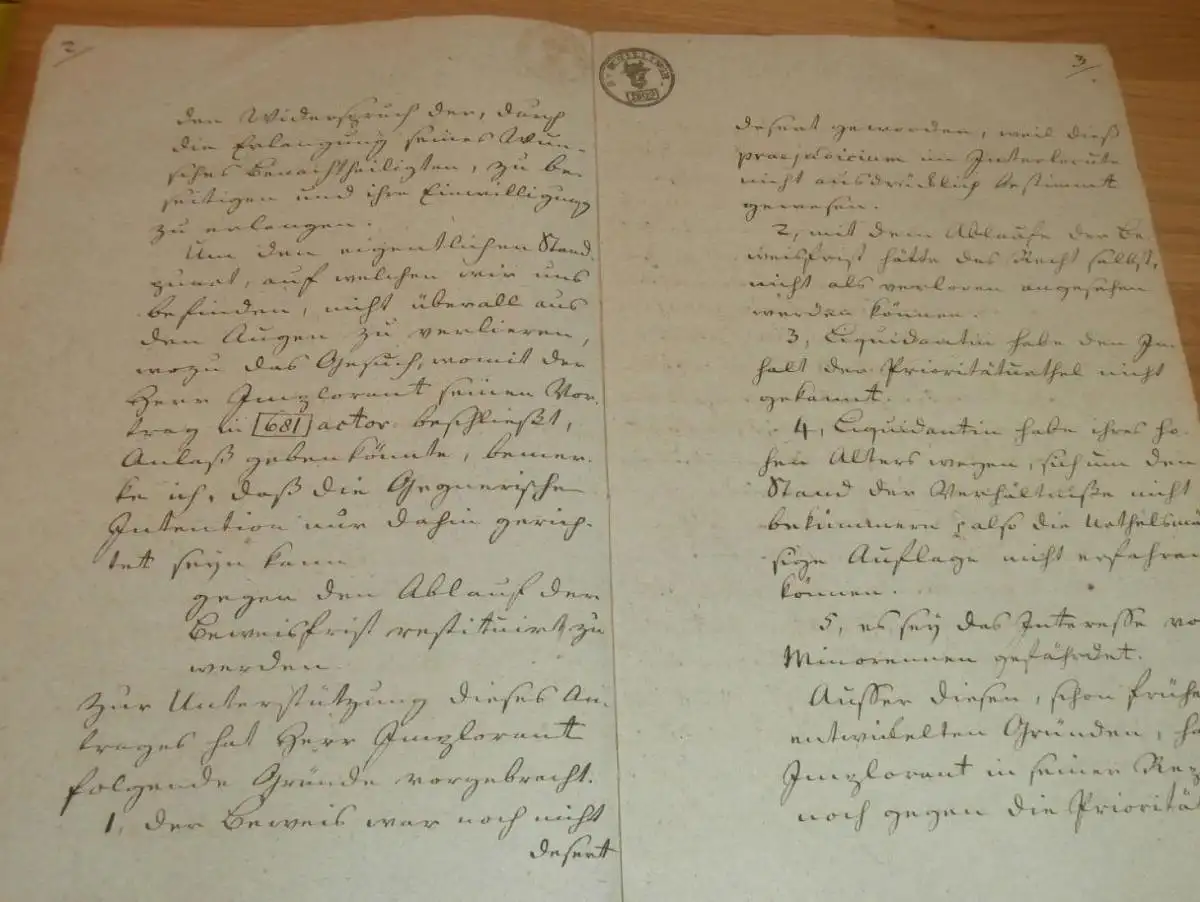 2
den Widerspruch der, durch
die Erlangung seines Wun-
sches Benachtheiligten, zu be-
seitigen und ihre Einwilligung
zu erlangen.
Um den eigentlichen Stand-
punct, auf welchen wir uns
befinden, nicht überall aus
den Augen zu verlieren,
wozu das Gesuch, womit der
Herr Implorant seinen Vor-
trag in [681] actor. beschließt,
Anlaß geben könnte, bemer-
ke ich, daß die Gegnerische
Intention nur dahin gerich-
tet seyn kann
gegen den Ablauf der
Beweisfrist restituirt zu
werden.
Zur Unterstützung dieses An-
trages hat Herr Implorant
folgende Gründe vorgebracht.
1, der Beweis war noch nicht
desert
3
desert geworden, weil dieß
praejudicium im Interlocute
nicht ausdrücklich bestimmt
gewesen.
2, mit dem Ablaufe der Be-
weisfrist hätte das Recht selbst,
nicht als verloren angesehen
werden können.
3, Liquidantin habe den In-
halt der Prioritäturthel nicht
gekannt.
4, Liquidantin habe ihres ho-
hen Alters wegen, sich um den
Stand der Verhältniße nicht
bekümmern, also die Urthelsmä
sige Auflage nicht erfahren
können.
5, es sey das Interesse vo
Minorennen gefährdet.
Ausser diesen, schon frühe
entwickelten Gründen, ha
Implorant in seiner Rep
noch gegen die Prioritä